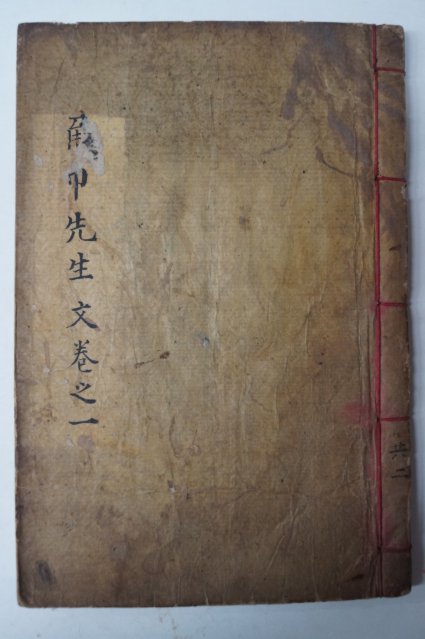 先生文卷之一
共二